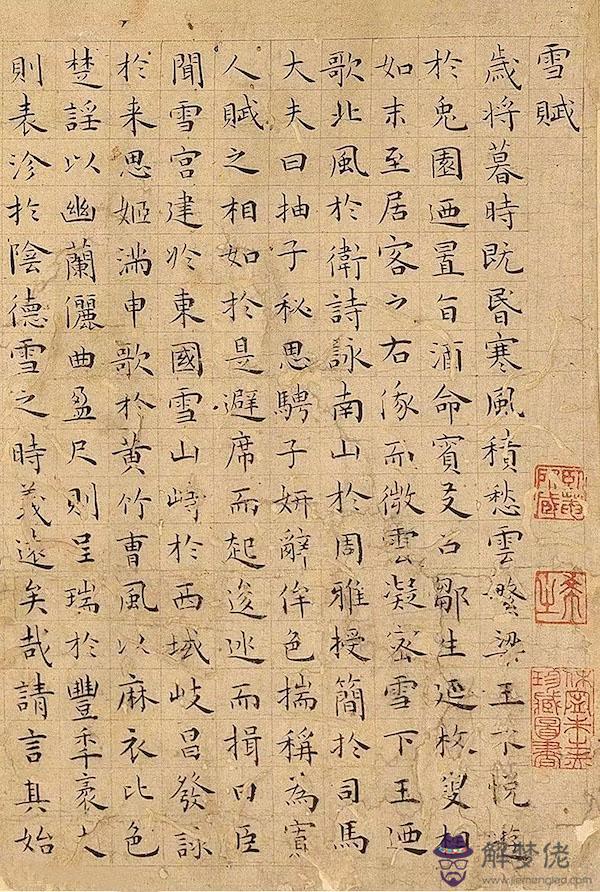 雪賦
歲將暮時既昏寒風積愁雲繁梁王不悅遊
於兔園迺置旨酒命賓友召鄒生延枚叟相
如末至居客之右俄而微雲凝密雪下王迺
歌北風於衛詩詠南山於周雅授簡於司馬
大夫曰抽子秘思騁子妍辭侔色揣稱為寡
人賦之相如於是避席而起逡巡而揖曰臣
聞雪宮建於東國雪山峙於西域岐昌發詠
於来思姬滿申歌於黃竹曹風以麻衣比色
楚謡以幽蘭儷曲盈尺則呈瑞於豐年袤丈
則表沴於陰德雪之時義遠矣哉請言其始
解梦佬